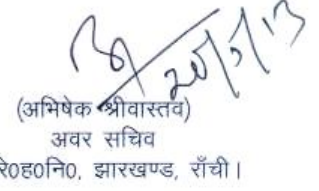 20/5/13
(अभिषेक श्रीवास्तव)
अवर सचिव
रे०ह०नि०, झारखण्ड, राँची।